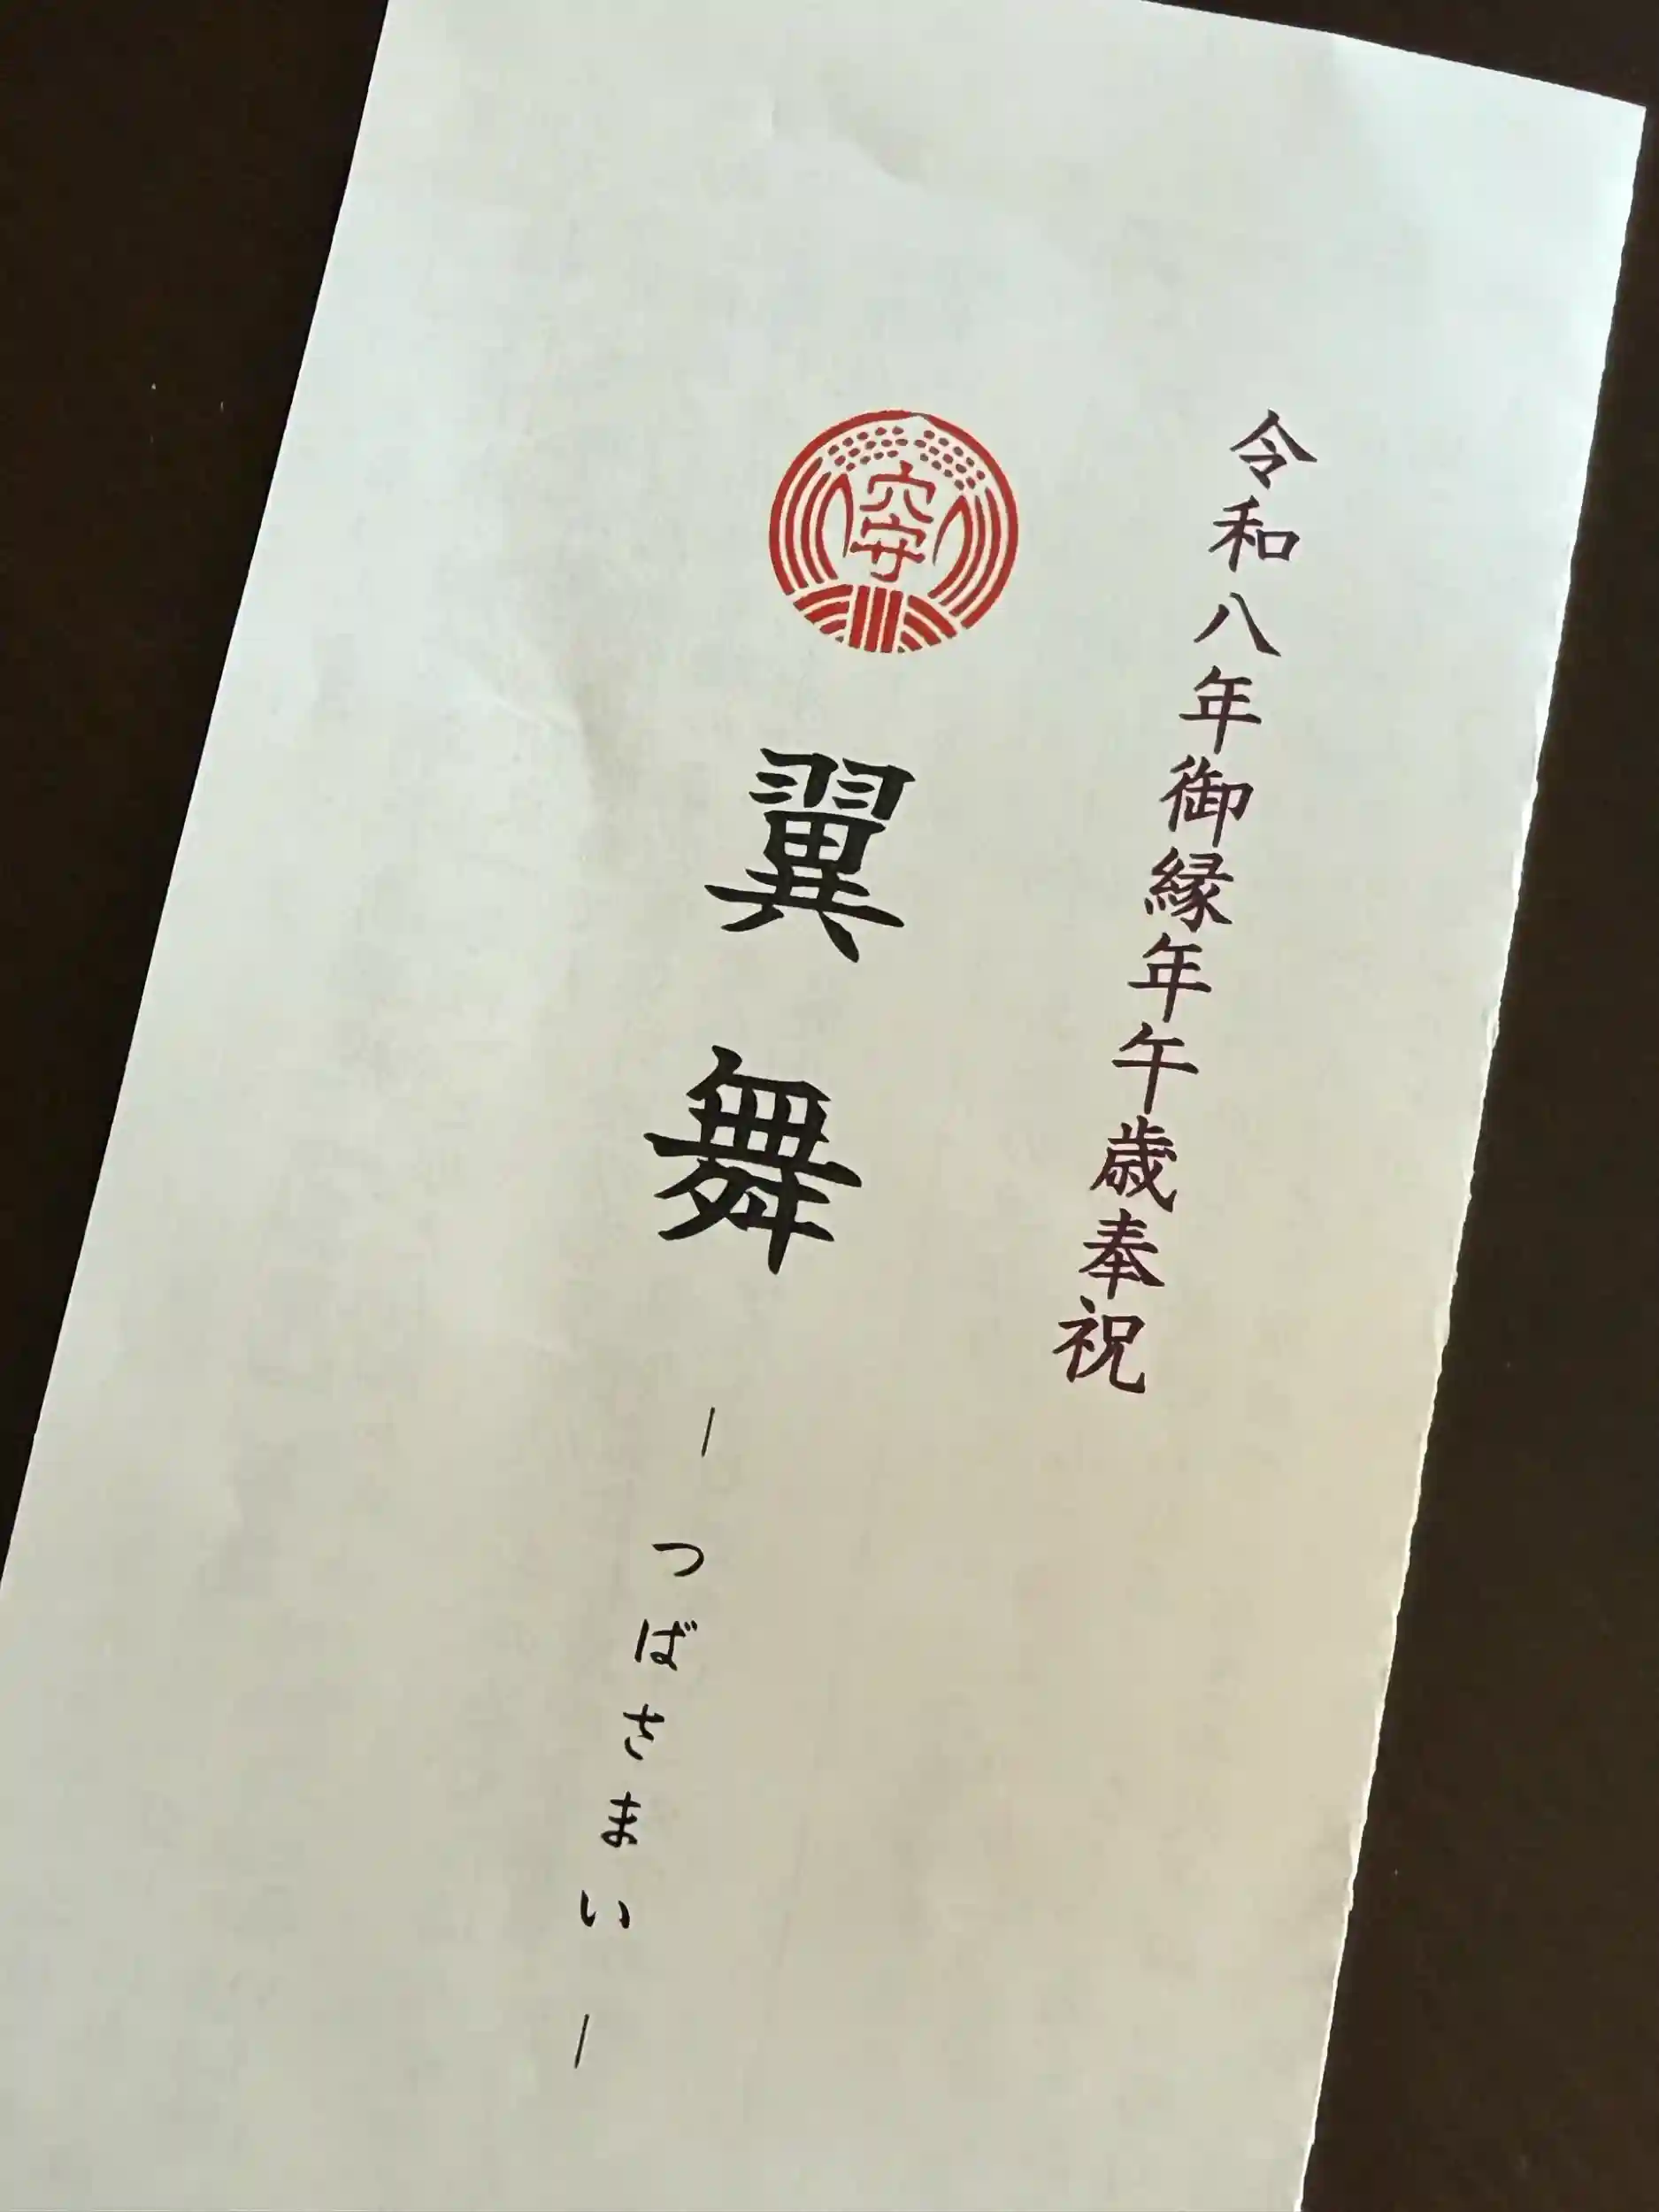 令和八年御縁年午歳奉祝
翼舞
｜つばさまい｜